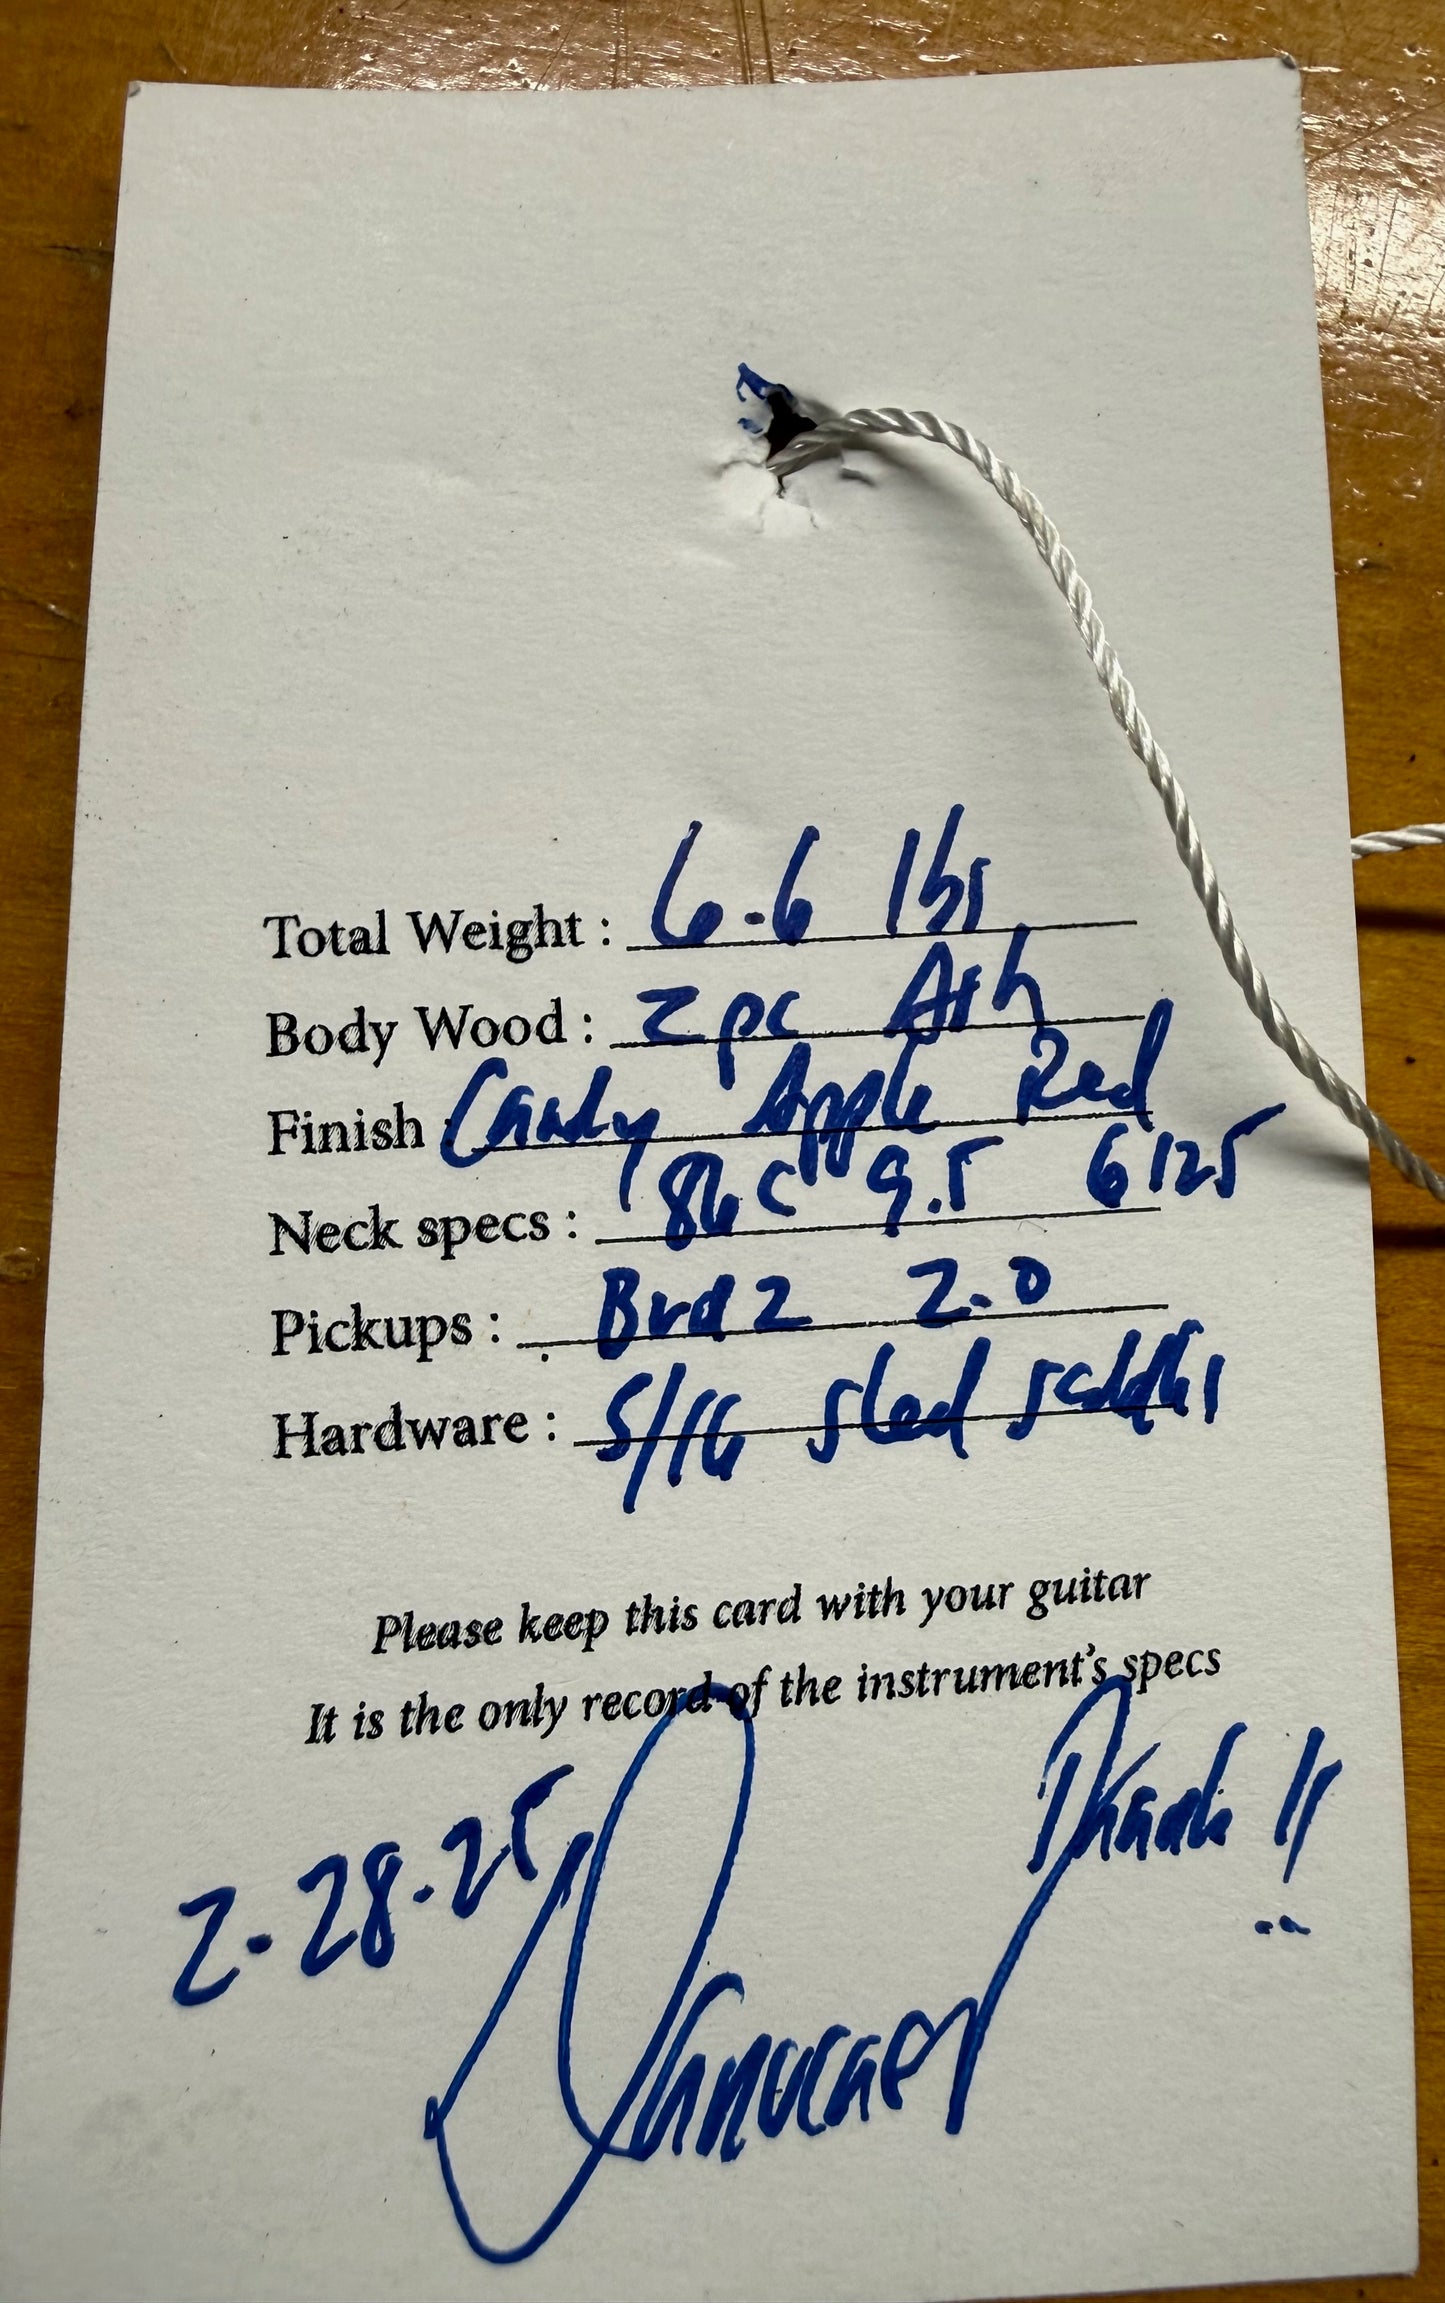 Total Weight : 6.6 lbs
Body Wood : 2 pc Ash
Finish Candy Apple Red
Neck specs : 86 C 9.5 6125
Pickups : Brdz 2.0
Hardware : 5/16 sled saddles
Please keep this card with your guitar
It is the only record of the instrument's specs
2.28.25
Thanks !!